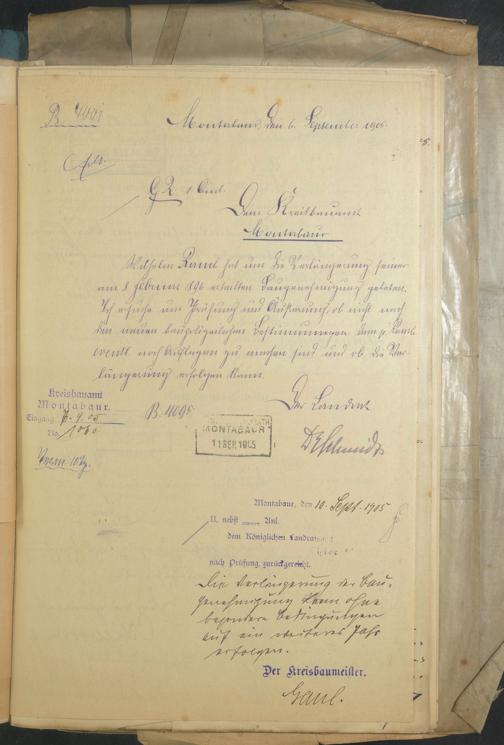 B 4001
Montabaur, den 6. September 1905.
Eilt.
G.R. 1 Bund.
Dem Kreisbauamt
Montabaur
Wilhelm hat um die Verlängerung seiner
am 8 Februar erhalten Baugenehmigung gebeten.
Ich ersuche um Prüfung und Äußerung, ob nicht nach
den neuen baupolizeilichen Bestimmungen dem p.
eventl noch Auflagen zu machen sind und ob die Ver-
längerung erfolgen kann.
Der Landrat
Kreisbauamt
Montabaur.
Eingang 7.9.05
No. 1060
B. 4095
MONTABAUR
11 SEP. 1905
Montabaur, den 10. Sept. 1905
U. nebst Anl.
dem Königlichen Landratsamt
hier
nach Prüfung zurückgereicht.
Die Verlängerung der Bau-
genehmigung kann ohne
besondere Bedingungen
auf ein weiteres Jahr
erfolgen.
Der Kreisbaumeister.
Gaul.